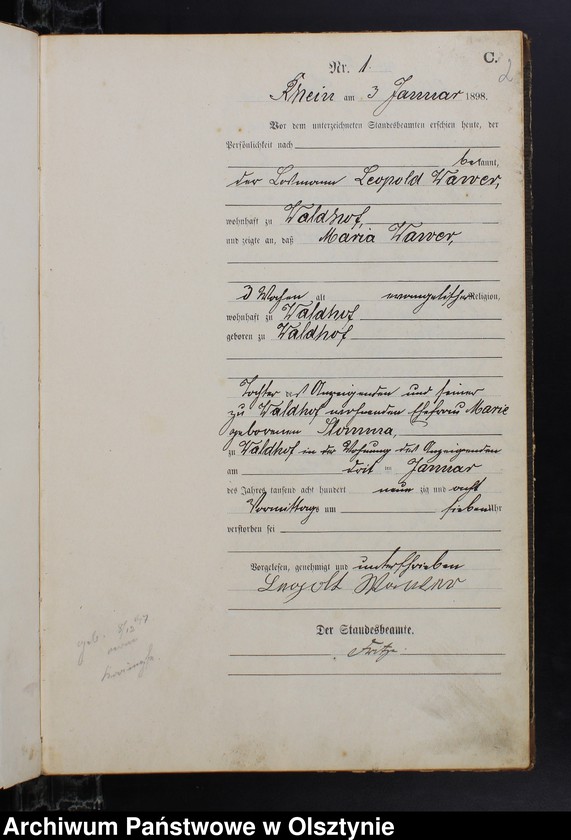 C.
2
Nr. 1.
Rhein am 3 Januar 1898.
Vor dem unterzeichneten Standesbeamten erschien heute, der
Persönlichkeit nach
bekannt,
der Losmann Leopold Wawer,
wohnhaft zu Waldhof,
und zeigte an, daß Maria Wawer,
3 Wochen alt evangelischer Religion,
wohnhaft zu Waldhof
geboren zu Waldhof
Tochter des Anzeigenden und seiner
zu Waldhof wohnenden Ehefrau Marie
geborenen
zu Waldhof in der Wohnung des Anzeigenden
am drit ten Januar
des Jahres tausend acht hundert neun zig und acht
Vormittags um sieben Uhr
verstorben sei
Vorgelesen, genehmigt und unterschrieben
Leopolt
Der Standesbeamte.
geb.
Archiwum Państwowe w Olsztynie